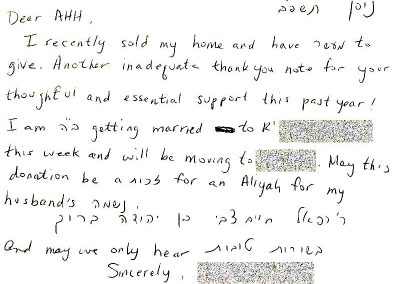 Dear AHH, ניסן תשפב
I recently sold my home and have מעשר to
give. Another inadequate thank you note for your
thoughtful and essential support this past year!
I am ב"ה getting married to
this week and will be moving to . May this
donation be a זכות for an Aliyah for my
husband's נשמה:
ר' רפאל חיים צבי בן יהודה ברוך
and may we only hear בשורות טובות
Sincerely,